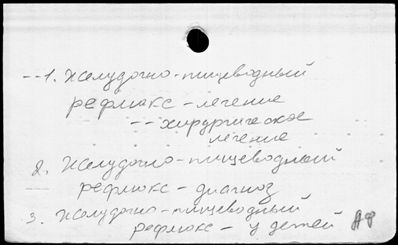 --1. Желудочно-пищеводный
рефлюкс - лечение
-- хирургическое
лечение
2. Желудочно-пищеводный
рефлюкс - диагноз
3. Желудочно-пищеводный
рефлюкс - у детей